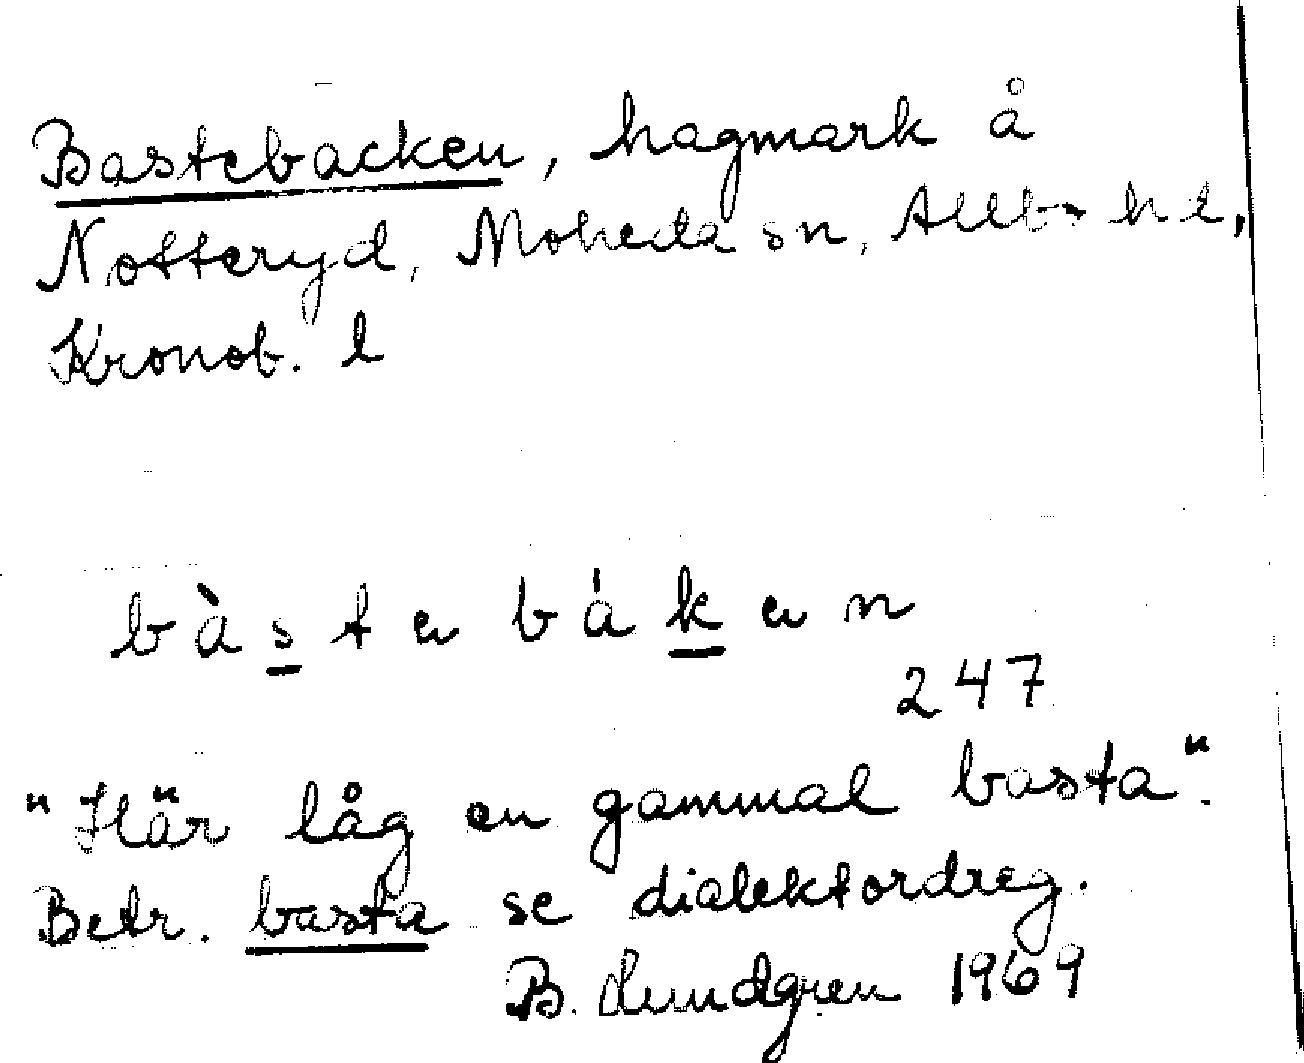 Bastebacken, hagmark å
Notteryd, Moheda sn, Allbo hd,
Kronob. l
bàstebáken
247
"Här låg en gammal basta".
Betr. basta se dialektordreg.
B. Lundgren 1969